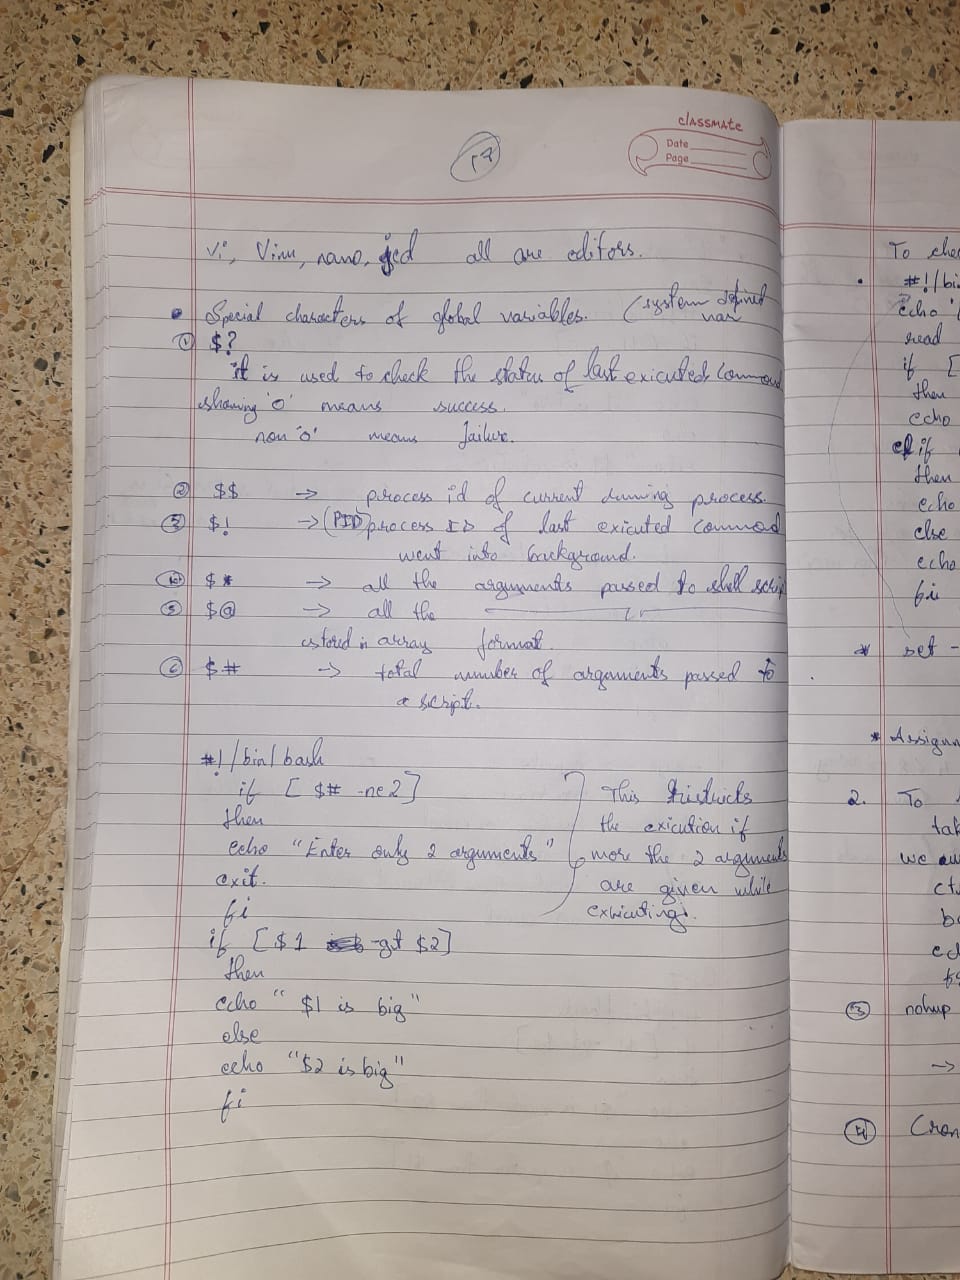 classmate
Date
Page
17
Vi, Vim, nano, ged all are editors.
• Special characters of global variables. (system defined var
① $?
it is used to check the status of last exicuted command
showing '0' means success.
non '0' means failure.
② $$ → process id of current running process.
③ $! → (PID) process ID of last exicuted command
went into background.
④ $* → all the arguments passed to shell scrip
⑤ $@ → all the
stored in array format.
⑥ $# → total number of arguments passed to
a script.
#!/bin/bash
if [ $# -ne 2]
then
echo "Enter only 2 arguments"
exit.
fi
This
the exicution if
more the 2 arguments
are given while
if [$1 -gt $2]
then
echo " $1 is big"
else
echo "$2 is big"
fi
To chec
• #!/bi
echo "
read
if [
then
echo
elif
then
echo
else
echo
fi
* set -
* Assignm
2. To
tak
we
ct
b
ec
③ nohup
→
④ Cron